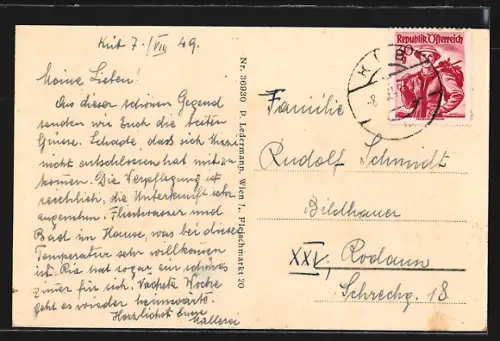 Küb 7./VIII 49.
Meine Lieben!
Aus dieser schönen Gegend
senden wir Euch die besten
Grüsse. Schade, dass sich
nicht entschlossen hat mitzu
kommen. Die Verpflegung ist
reichlich, die Unterkunft sehr
angenehm. Fliesswasser und
Bad im Hause, was bei dieser
Temperatur sehr willkommen
ist. Ria hat sogar ein schönes
Zimmer für sich. Nächste Woche
geht es wieder heimwärts.
Herzlichst Eure
Nr. 36930 P. Ledermann, Wien I., Fleischmarkt 20
Republik Österreich
Familie
Rudolf Schmidt
Bildhauer
XXV, Rodaun
18.